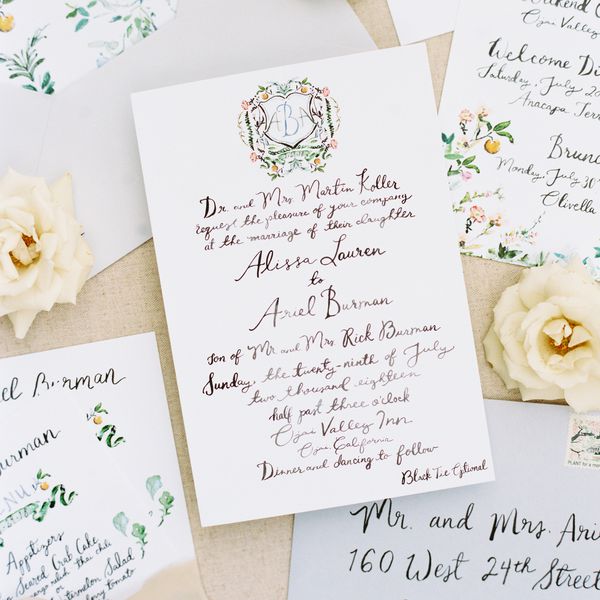 ABA
Dr. and Mrs. Martin Koller
request the pleasure of your company
at the marriage of their daughter
Alissa Lauren
to
Ariel Burman
son of Mr. and Mrs. Rick Burman
Sunday, the twenty-ninth of July
two thousand eighteen
half past three o'clock
Ojai Valley Inn
Ojai, California
Dinner and dancing to follow
Black Tie Optional
Weekend
Ojai Valley
Welcome Di
Saturday, July 2
Anacapa Terr
Brun
Monday, July 30
Olivella
el Burman
urman
NU
Appetizers
Seared Crab Cake
Salad
berry tomato
Mr. and Mrs. Ari
160 West 24th Street